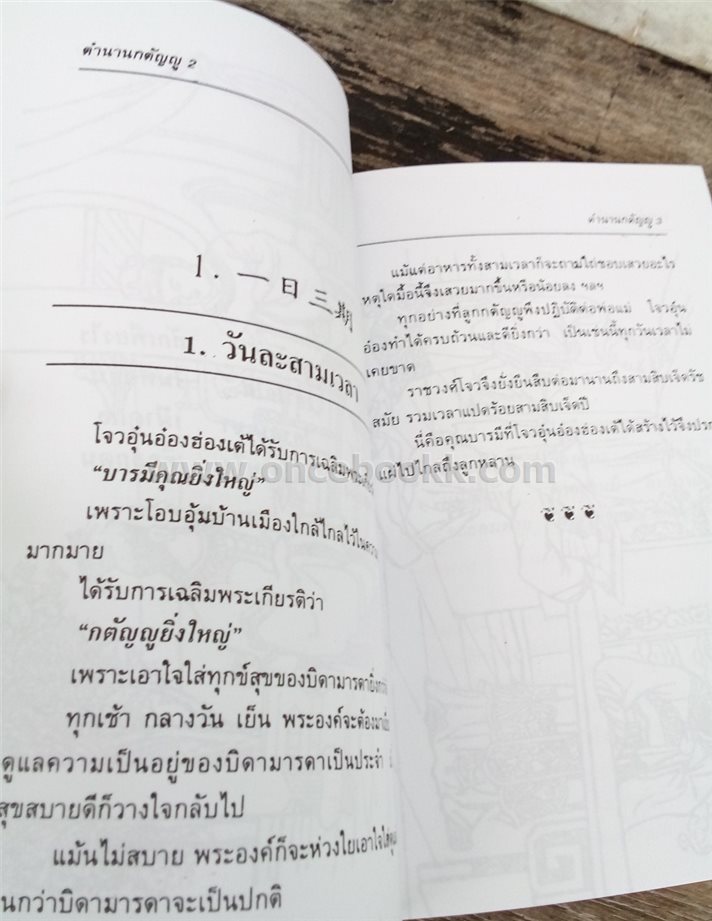 ตำนานกตัญญู 2
1. 一日三朝
1. วันละสามเวลา
โจวอุ๋นอ๋องฮ่องเต้ได้รับการเฉลิมพระเกียรติ
“บารมีคุณยิ่งใหญ่”
เพราะโอบอุ้มบ้านเมืองใกล้ไกลไว้ในความ
มากมาย
ได้รับการเฉลิมพระเกียรติว่า
“กตัญญูยิ่งใหญ่”
เพราะเอาใจใส่ทุกข์สุขของบิดามารดายิ่งกว่า
ทุกเช้า กลางวัน เย็น พระองค์จะต้องมา
ดูแลความเป็นอยู่ของบิดามารดาเป็นประจำ
สุขสบายดีก็วางใจกลับไป
แม้นไม่สบาย พระองค์ก็จะห่วงใยเอาใจใส่
นกว่าบิดามารดาจะเป็นปกติ
ตำนานกตัญญู 3
แม้แต่อาหารทั้งสามเวลาก็จะถามไถ่ชอบเสวยอะไร
เหตุใดมื้อนี้จึงเสวยมากขึ้นหรือน้อยลง ฯลฯ
ทุกอย่างที่ลูกกตัญญูพึงปฏิบัติต่อพ่อแม่ โจวอุ๋น
อ๋องทำได้ครบถ้วนและดียิ่งกว่า เป็นเช่นนี้ทุกวันเวลาไม่
เคยขาด
ราชวงศ์โจวจึงยั่งยืนสืบต่อมานานถึงสามสิบเจ็ดรัช
สมัย รวมเวลาแปดร้อยสามสิบเจ็ดปี
นี่คือคุณบารมีที่โจวอุ๋นอ๋องฮ่องเต้ได้สร้างไว้จึงปรก
แผ่ไปไกลถึงลูกหลาน
www.oncebookk.com